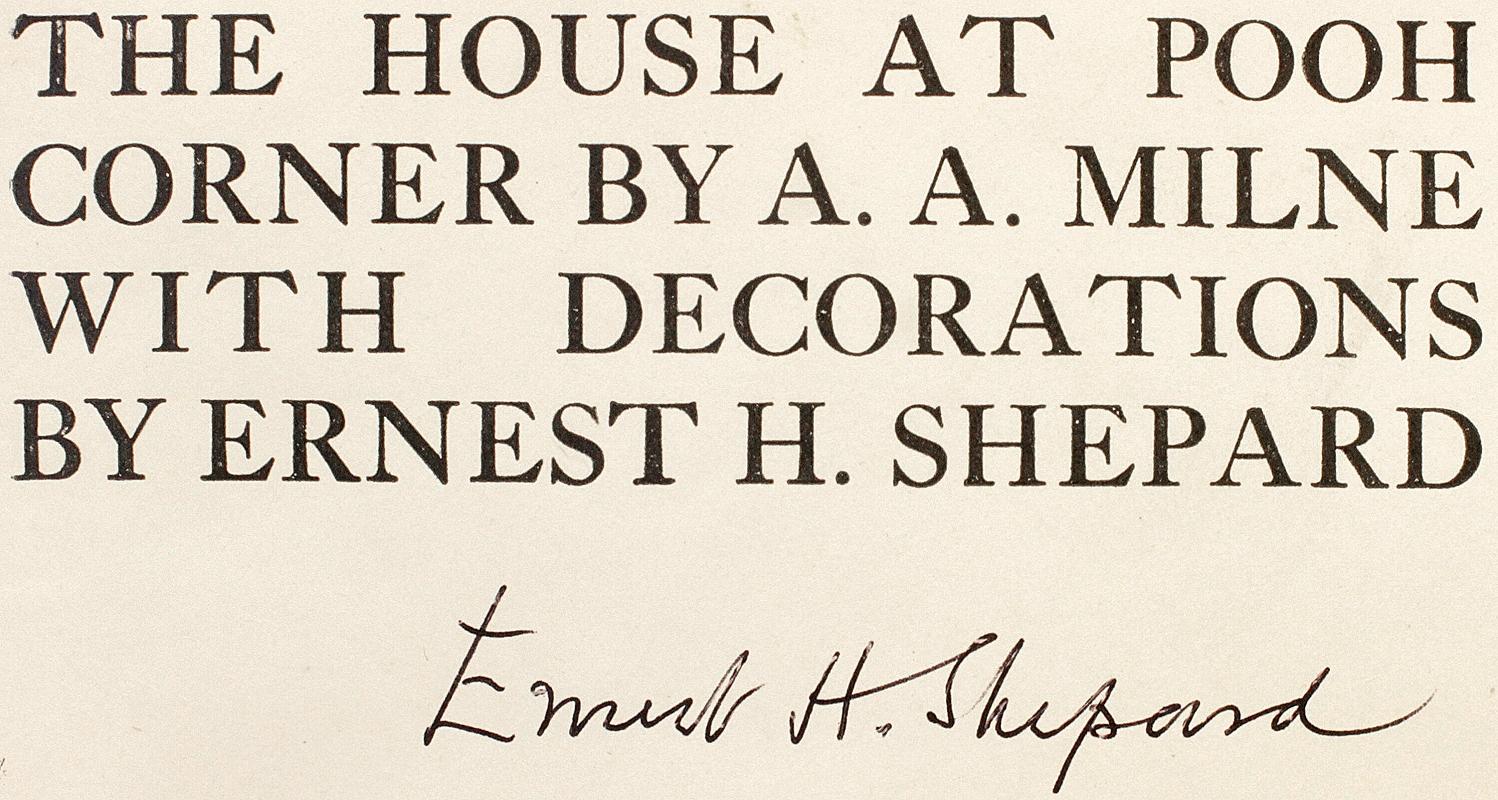 THE HOUSE AT POOH
CORNER BY A. A. MILNE
WITH DECORATIONS
BY ERNEST H. SHEPARD
Ernest H. Shepard